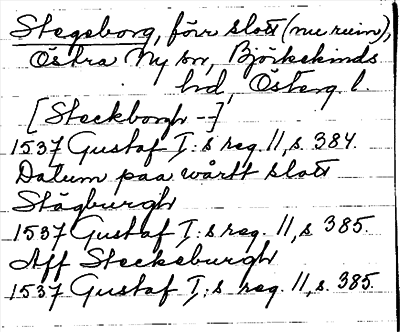 Stegeborg, förr slott (nu ruin),
Östra Ny sn, Björkekinds
hd, Österg. l.
[Steckborgh --]
1537 Gustaf I:s reg. 11, s. 384.
Datum paa wårtt slott
Stägburgh
1537 Gustaf I:s reg. 11, s. 385.
Aff Steckeburgh
1537 Gustaf I:s reg. 11, s. 385.